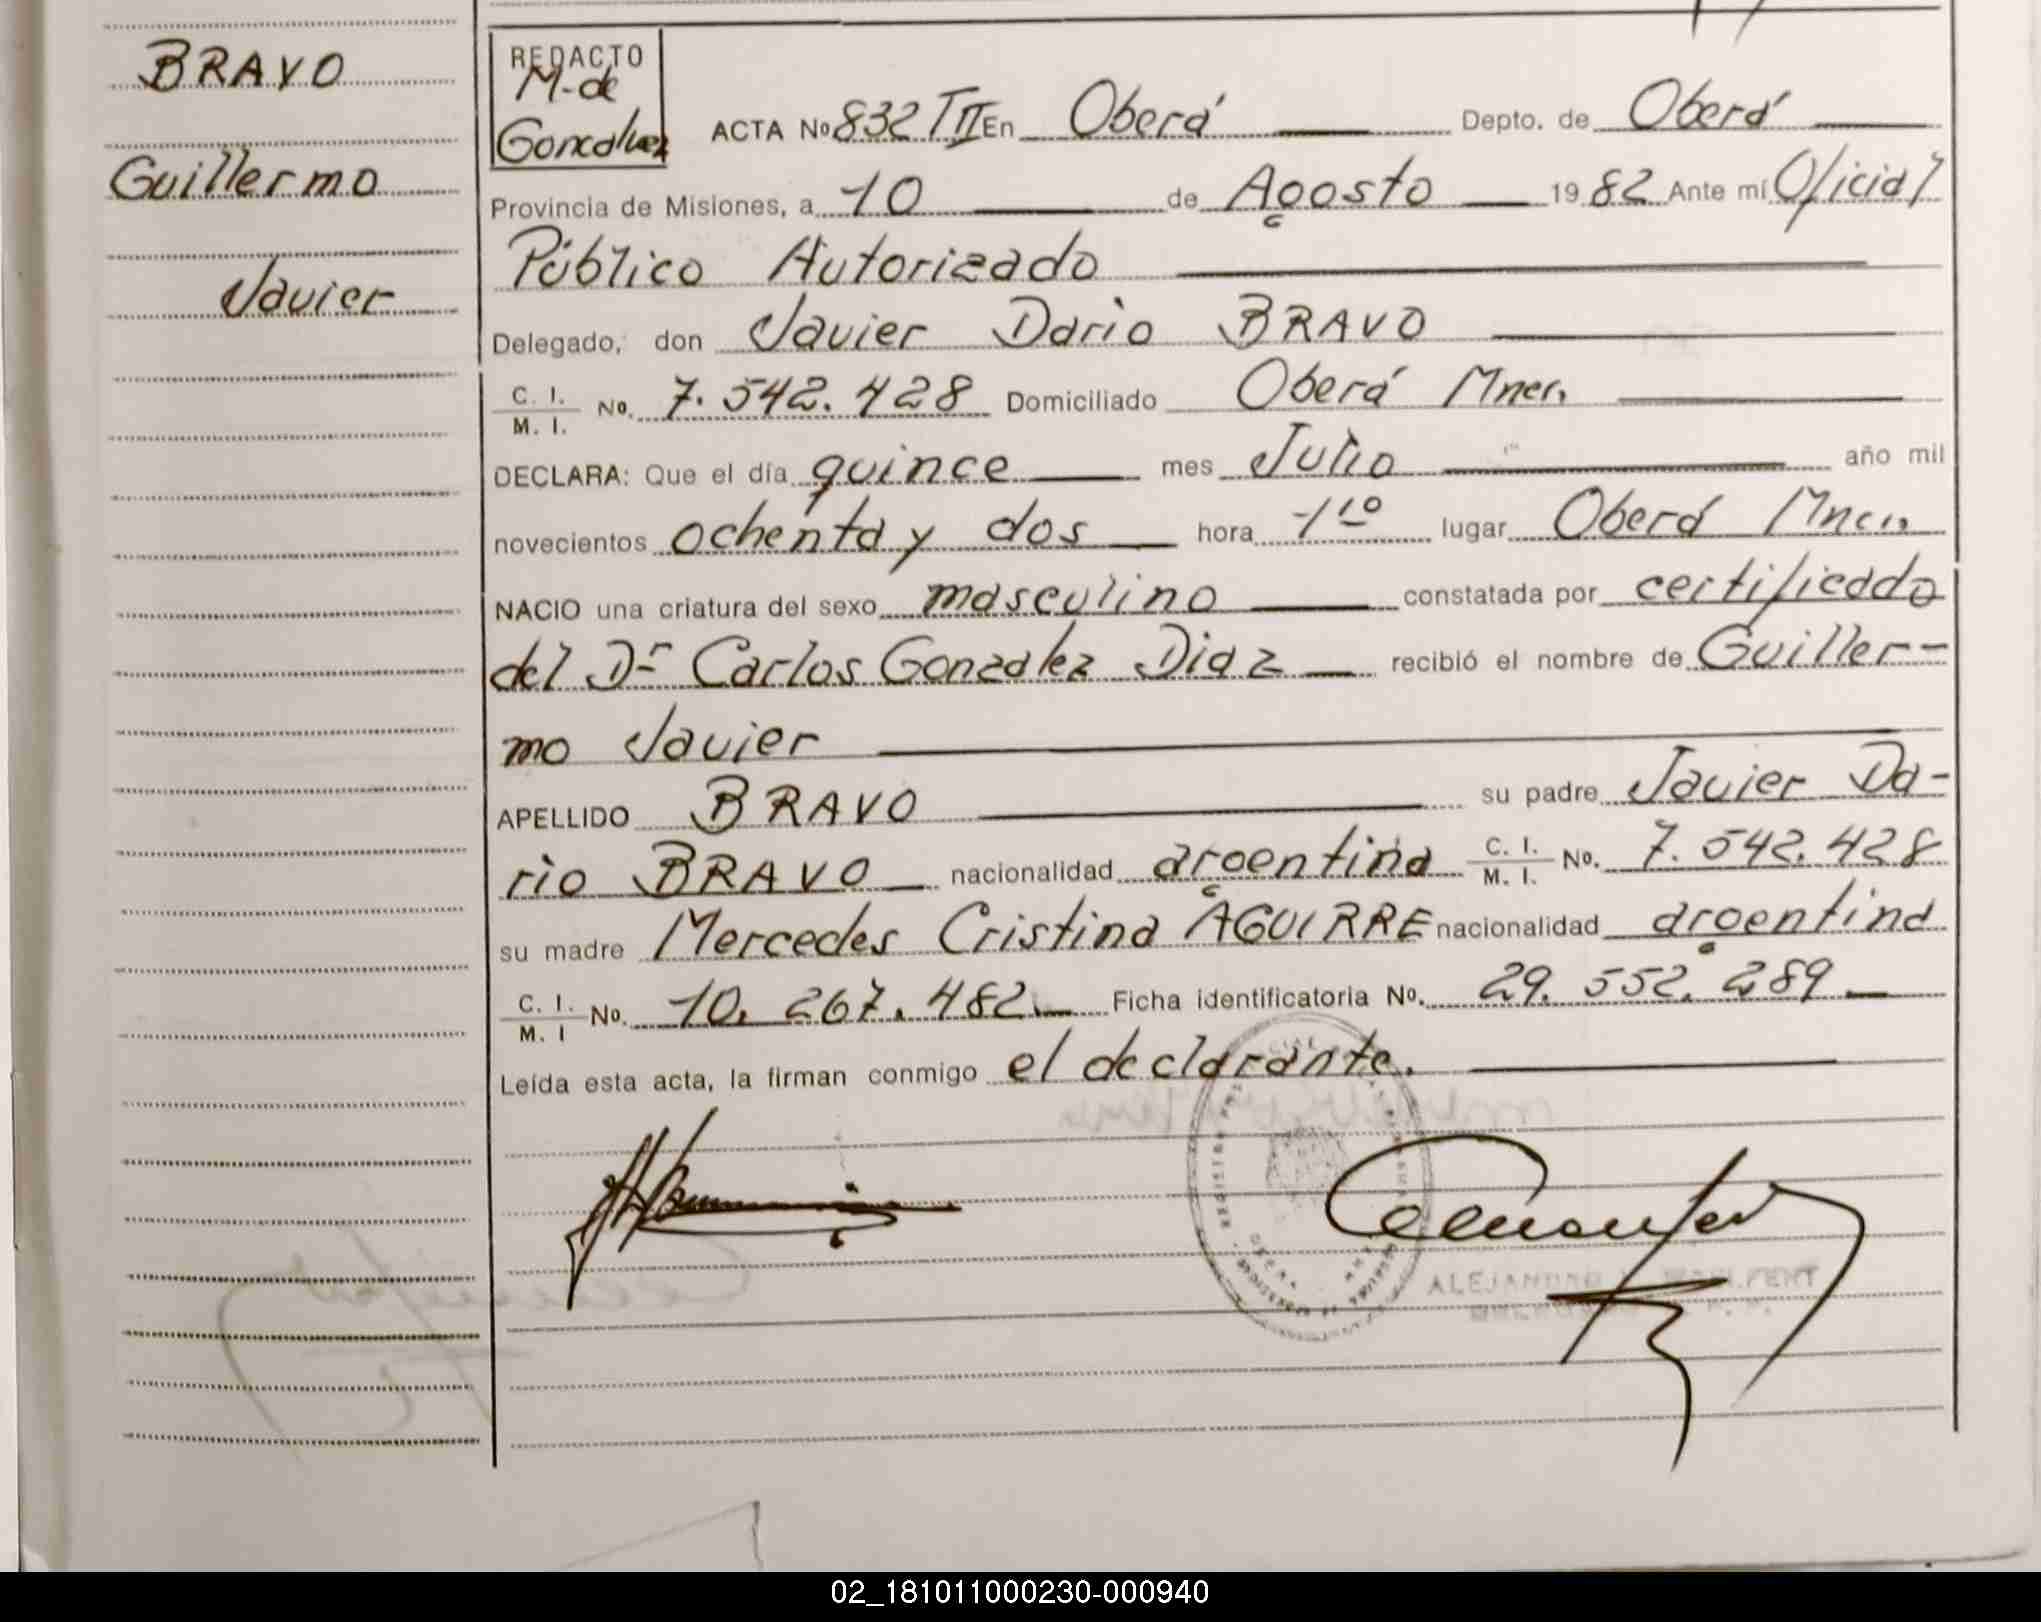 BRAVO
Guillermo
Javier
REDACTO
M. de
Goncalvez
ACTA Nº 832 TII En Oberá Depto. de Oberá
Provincia de Misiones, a 10 de Agosto 1982 Ante mí Oficial
Público Autorizado
Delegado, don Javier Dario BRAVO
C. I.
M. I. Nº. 7.542.428 Domiciliado Oberá Mnes.
DECLARA: Que el día quince mes Julio año mil
novecientos ochenta y dos hora 1¹⁰ lugar Oberá Mnes.
NACIO una criatura del sexo masculino constatada por certificado
del Dr Carlos Gonzalez Diaz recibió el nombre de Guiller-
mo Javier
APELLIDO BRAVO su padre Javier Da-
rio BRAVO nacionalidad argentina C. I. M. I. Nº. 7.542.428
su madre Mercedes Cristina AGUIRRE nacionalidad argentina
C. I. M. I Nº. 10.267.482 Ficha identificatoria Nº. 29.552.289
Leída esta acta, la firman conmigo el declarante.
ALEJANDRO
02_181011000230-000940